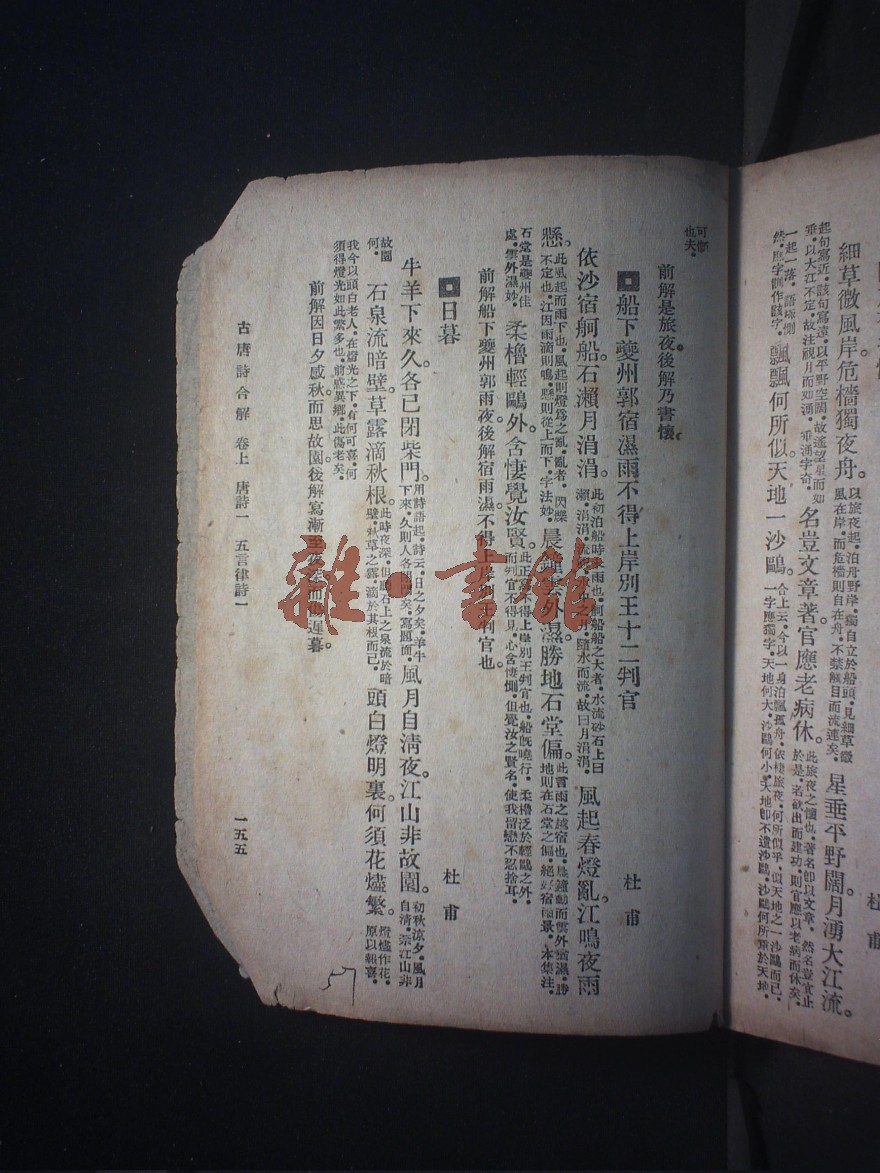 細草微風岸。危檣獨夜舟。以旅夜起。泊舟野岸。獨自立於船頭。見細草微風在岸。而危檣則自在舟。不禁觸目而流連矣。星垂平野闊。月湧大江流。
起句寫近。該句寫遠。以平野空闊。故遙望星而如垂。以大江不定。故注視月而如湧。垂湧字奇。名豈文章著。官應老病休。此旅夜之懷也。著名卽以文章。然名豈實止於是。若欲出而建功。則官應以老病而休矣。
一起一落。語極惻然。應字訓作該字。飄飄何所似。天地一沙鷗。合上云。今以一身泊飄孤舟。依棲旅夜。何所似乎。似天地之一沙鷗而已。一字應獨字。天地何大。沙鷗何小。天地卽不遺沙鷗。沙鷗何所乘於天地。
可慨也夫。
前解是旅夜。後解乃書懷。
船下夔州郭宿濕雨不得上岸別王十二判官 杜甫
依沙宿舸船。石瀨月涓涓。此初泊船時未雨也。舸船船之大者。水流砂石上曰瀨。涓涓。隨水而流。故曰月涓涓。風起春燈亂。江鳴夜雨
懸。此風起而雨下也。風起則燈爲之亂。亂者。閃爍不定也。江因雨滴則鳴。懸則從上而下。字法妙。晨鐘雲外濕。勝地石堂偏。此言雨之越宿也。晨鐘動而雲外猶濕。勝地則在石堂之偏。絕好宿景。本集注。
石堂是夔州佳處。雲外濕妙。柔櫓輕鷗外。含悽覺汝賢。此正寫不得上岸別王判官也。船旣曉行。柔櫓泛於輕鷗之外。而判官不得見。心含悽惻。但覺汝之賢名。使我留戀不忍捨耳。
前解船下夔州郭雨夜。後解宿雨濕。不得上岸別王判官也。
日暮 杜甫
牛羊下來久。各已閉柴門。用詩語起。詩云。日之夕矣。羊牛下來。久則人各閉矣。寫題面。風月自淸夜。江山非故園。初秋涼夕。風月自淸。奈江山非
故園何。石泉流暗壁。草露滴秋根。此時夜深。但聽石上之泉流於暗壁。秋草之露。滴於其根而已。頭白燈明裏。何須花燼繁。燈燼作花。原以報喜。
我今以頭白老人。在燈光之下。有何可喜。何須得燈光如此繁多也。前感異鄉。此傷老矣。
前解因日夕感秋。而思故園。後解寫漸至夜深。而傷遲暮。
古唐詩合解 卷上 唐詩一 五言律詩一 一五五
57
雜·書館